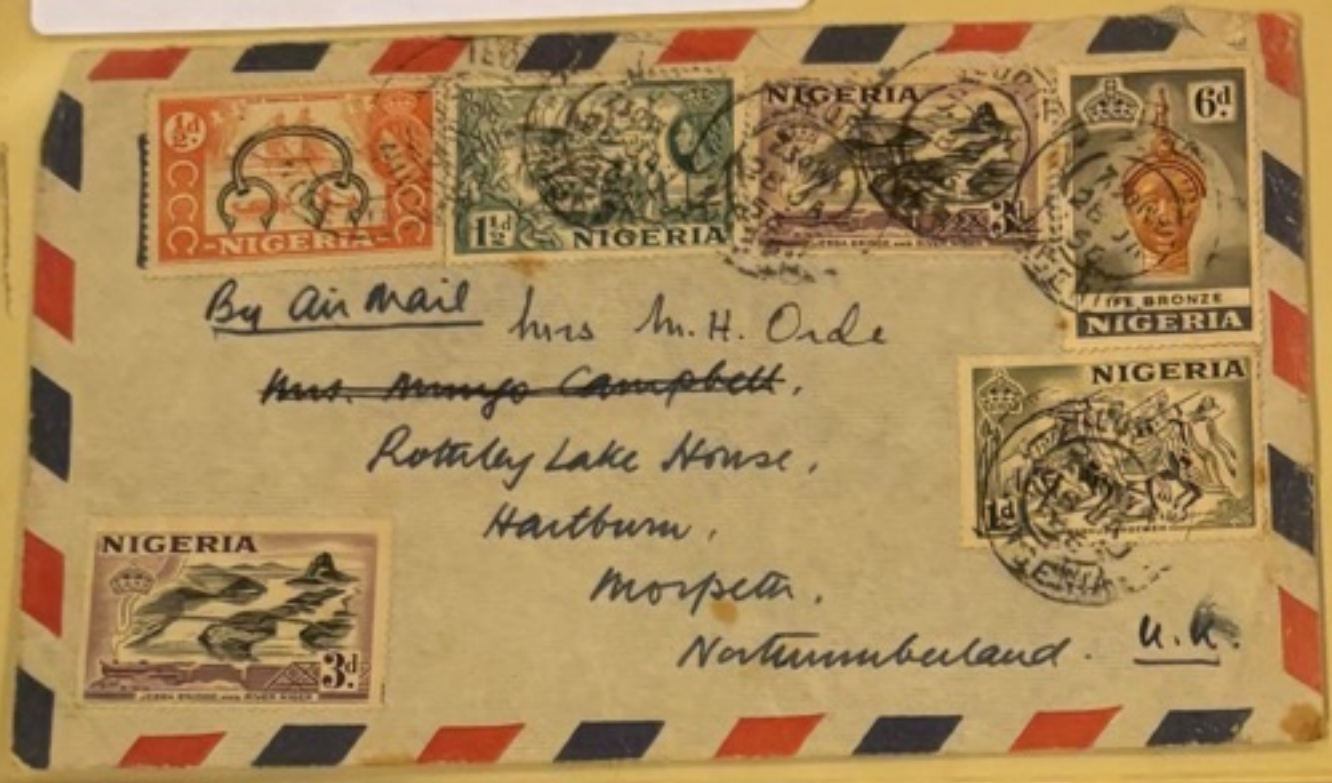 ½d
NIGERIA
1½d
NIGERIA
NIGERIA
3d
JEBBA BRIDGE AND RIVER NIGER
6d.
IFE BRONZE
NIGERIA
By Air Mail
Mrs M. H. Orde
Mrs. Mungo Campbell,
Rothley Lake House,
Hartburn,
Morpeth,
Northumberland. U.K.
NIGERIA
1d
NIGERIA
3d.
JEBBA BRIDGE AND RIVER NIGER